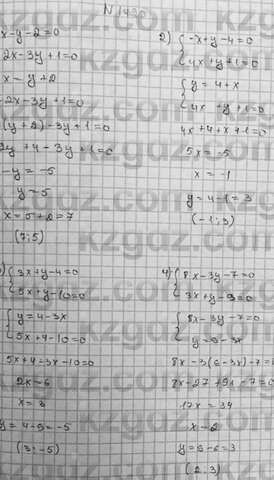 N1430
x-y-2=0
2x-3y+1=0
x=y+2
2x-3y+1=0
(y+2)-3y+1=0
2y+4-3y+1=0
-y=-5
y=5
x=5+2=7
(7;5)
2) {-x+y-4=0
4x+y+1=0
{y=4+x
4x+y+1=0
4x+4+x+1=0
5x=-5
x=-1
y=4-1=3
(-1;3)
) {3x+y-4=0
5x+y-10=0
{y=4-3x
5x+y-10=0
5x+4-3x-10=0
2x=6
x=3
y=4-9=-5
(3;-5)
4) {8x-3y-7=0
3x+y-9=0
{8x-3y-7=0
y=9-3x
8x-3(9-3x)-7=
8x-27+9x-7=0
17x=34
x=2
y=9-6=3
(2;3)
kzgdz.com